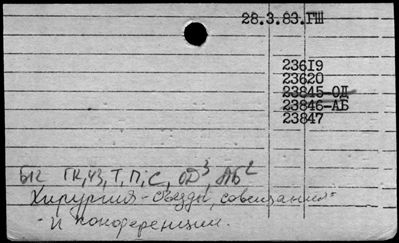 28.3.83.ГШ
23619
23620
23845-ОД
23846-АБ
23847
612 ГК, ЧЗ, Т, П, С, ОД³, АБ²
Хирургия - съезды, совещания
- и конференции.